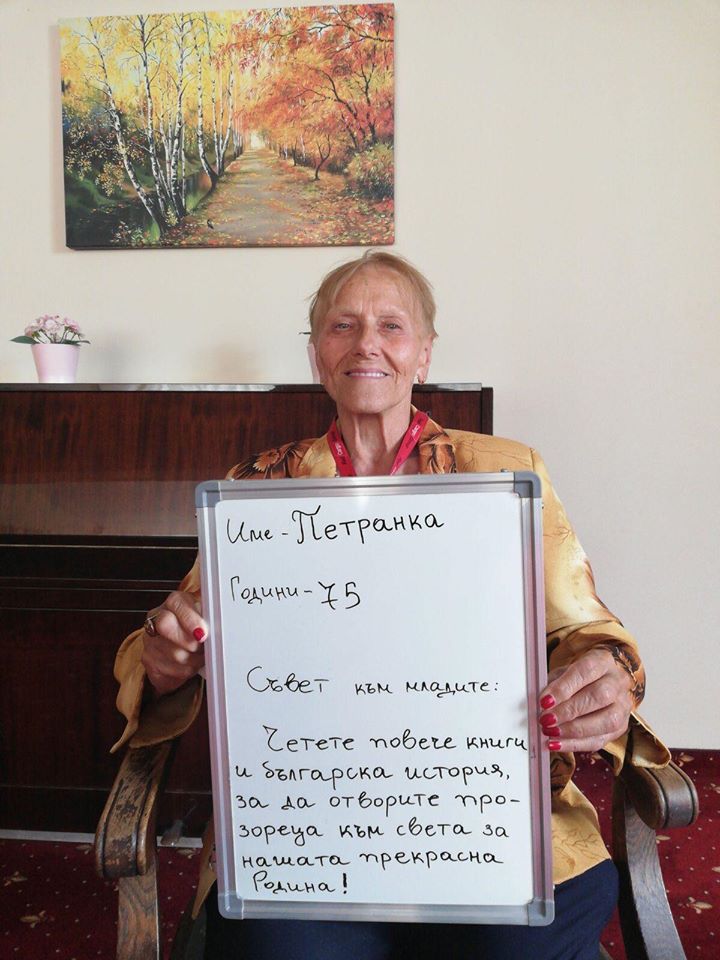 Име - Петранка
Години - 75
Съвет към младите:
Четете повече книги
и българска история,
за да отворите про-
зореца към света за
нашата прекрасна
Родина!